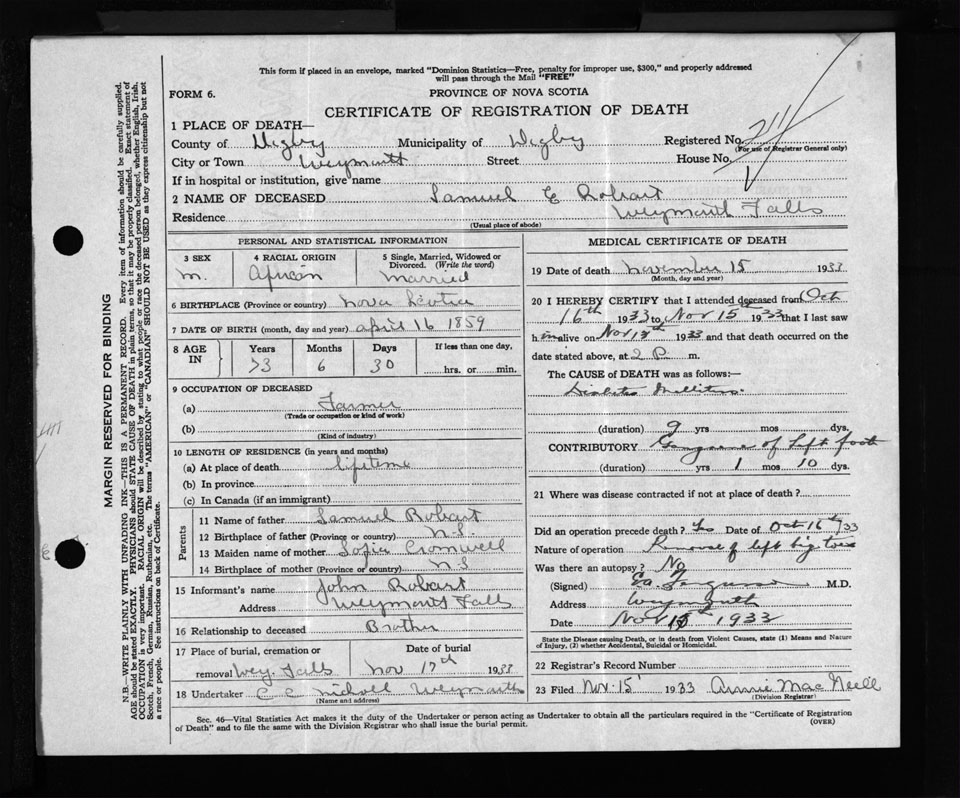 This form if placed in an envelope, marked "Dominion Statistics—Free, penalty for improper use, $300," and properly addressed
will pass through the Mail "FREE"
FORM 6.
PROVINCE OF NOVA SCOTIA
CERTIFICATE OF REGISTRATION OF DEATH
1 PLACE OF DEATH—
County of Digby Municipality of Digby Registered No. 211
(For use of Registrar General only)
City or Town Weymouth Street House No.
If in hospital or institution, give name
2 NAME OF DECEASED Samuel E Robart
Residence Weymouth Falls
(Usual place of abode)
PERSONAL AND STATISTICAL INFORMATION
3 SEX 4 RACIAL ORIGIN 5 Single, Married, Widowed or Divorced. (Write the word)
m. African married
6 BIRTHPLACE (Province or country) Nova Scotia
7 DATE OF BIRTH (month, day and year) April 16 1859
8 AGE IN Years Months Days If less than one day,
73 6 30 hrs. or min.
9 OCCUPATION OF DECEASED
(a) Farmer
(Trade or occupation or kind of work)
(b)
(Kind of industry)
10 LENGTH OF RESIDENCE (in years and months)
(a) At place of death lifetime
(b) In province
(c) In Canada (if an immigrant)
Parents
11 Name of father Samuel Robart
12 Birthplace of father (Province or country) N.S.
13 Maiden name of mother Cromwell
14 Birthplace of mother (Province or country) N S
15 Informant's name John Robart
Address Weymouth Falls
16 Relationship to deceased Brother
17 Place of burial, cremation or Date of burial
removal Wey. Falls Nov 17th 1933
18 Undertaker C C Nicholl Weymouth
(Name and address)
MEDICAL CERTIFICATE OF DEATH
19 Date of death November 15 1933
(Month, day and year)
20 I HEREBY CERTIFY that I attended deceased from Oct
16th 1933 to Nov 15th 1933 that I last saw
h im alive on Nov 1933 and that death occurred on the
date stated above, at 2 P. m.
The CAUSE of DEATH was as follows:—
Diabetes Mellitus
(duration) 9 yrs mos dys.
CONTRIBUTORY Gangrene of left foot
(duration) yrs 1 mos 10 dys.
21 Where was disease contracted if not at place of death?
Did an operation precede death? Yes Date of Oct 16th/33
Nature of operation Removal of left big toe
Was there an autopsy? No
(Signed) Ferguson M.D.
Address Weymouth
Date Nov 1933
State the Disease causing Death, or in death from Violent Causes, state (1) Means and Nature
of Injury, (2) whether Accidental, Suicidal or Homicidal.
22 Registrar's Record Number
23 Filed Nov. 15 1933 Annie MacNeill
(Division Registrar)
Sec. 46—Vital Statistics Act makes it the duty of the Undertaker or person acting as Undertaker to obtain all the particulars required in the "Certificate of Registration
of Death" and to file the same with the Division Registrar who shall issue the burial permit.
(OVER)
MARGIN RESERVED FOR BINDING
N.B.—WRITE PLAINLY WITH UNFADING INK—THIS IS A PERMANENT RECORD. Every item of information should be carefully supplied.
AGE should be stated EXACTLY. PHYSICIANS should STATE CAUSE OF DEATH in plain terms, so that it may be properly classified. Exact statement of
OCCUPATION is very important. RACIAL ORIGIN will be described by stating to what people or race the deceased person belonged, whether English, Irish,
Scotch, French, German, Russian, Ruthenian, etc. The terms "AMERICAN" or "CANADIAN" SHOULD NOT BE USED as they express citizenship but not
a race or people. See instructions on back of Certificate.